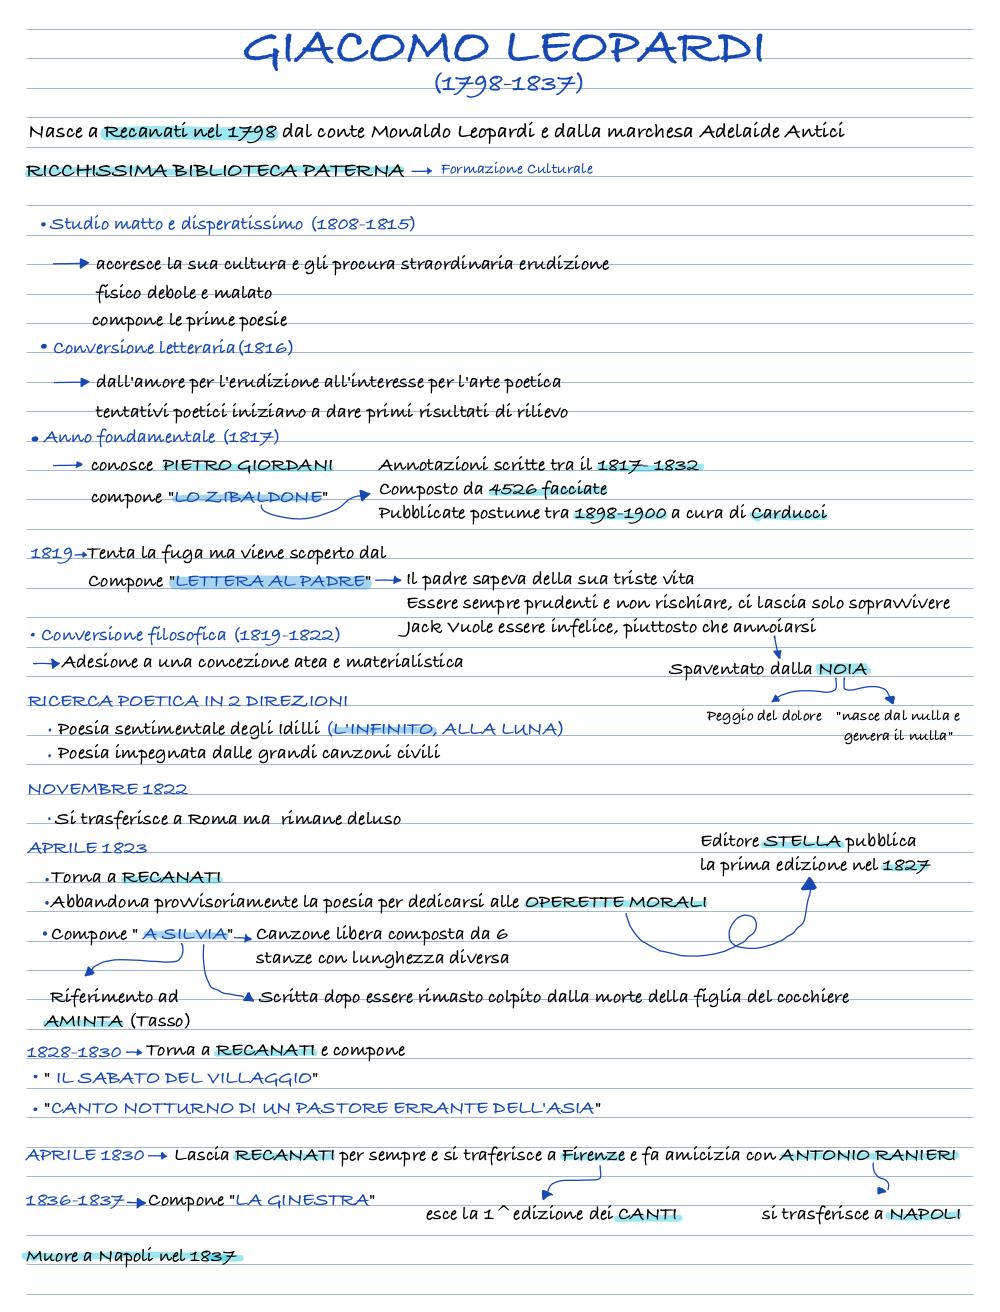 GIACOMO LEOPARDI
(1798-1837)
Nasce a Recanati nel 1798 dal conte Monaldo Leopardi e dalla marchesa Adelaide Antici
RICCHISSIMA BIBLIOTECA PATERNA → Formazione Culturale
• Studio matto e disperatissimo (1808-1815)
→ accresce la sua cultura e gli procura straordinaria erudizione
fisico debole e malato
compone le prime poesie
• Conversione letteraria (1816)
→ dall'amore per l'erudizione all'interesse per l'arte poetica
tentativi poetici iniziano a dare primi risultati di rilievo
• Anno fondamentale (1817)
→ conosce PIETRO GIORDANI
compone "LO ZIBALDONE"
Annotazioni scritte tra il 1817-1832
Composto da 4526 facciate
Pubblicate postume tra 1898-1900 a cura di Carducci
1819→Tenta la fuga ma viene scoperto dal
Compone "LETTERA AL PADRE" → Il padre sapeva della sua triste vita
Essere sempre prudenti e non rischiare, ci lascia solo sopravvivere
Jack Vuole essere infelice, piuttosto che annoiarsi
Spaventato dalla NOIA
Peggio del dolore
"nasce dal nulla e
genera il nulla"
• Conversione filosofica (1819-1822)
→ Adesione a una concezione atea e materialistica
RICERCA POETICA IN 2 DIREZIONI
• Poesia sentimentale degli Idilli (L'INFINITO, ALLA LUNA)
• Poesia impegnata dalle grandi canzoni civili
NOVEMBRE 1822
• Si trasferisce a Roma ma rimane deluso
APRILE 1823
• Torna a RECANATI
• Abbandona provvisoriamente la poesia per dedicarsi alle OPERETTE MORALI
Editore STELLA pubblica
la prima edizione nel 1827
• Compone " A SILVIA" → Canzone libera composta da 6
stanze con lunghezza diversa
Riferimento ad
AMINTA (Tasso)
Scritta dopo essere rimasto colpito dalla morte della figlia del cocchiere
1828-1830 → Torna a RECANATI e compone
• " IL SABATO DEL VILLAGGIO"
• "CANTO NOTTURNO DI UN PASTORE ERRANTE DELL'ASIA"
APRILE 1830 → Lascia RECANATI per sempre e si traferisce a Firenze e fa amicizia con ANTONIO RANIERI
esce la 1^edizione dei CANTI
si trasferisce a NAPOLI
1836-1837→Compone "LA GINESTRA"
Muore a Napoli nel 1837